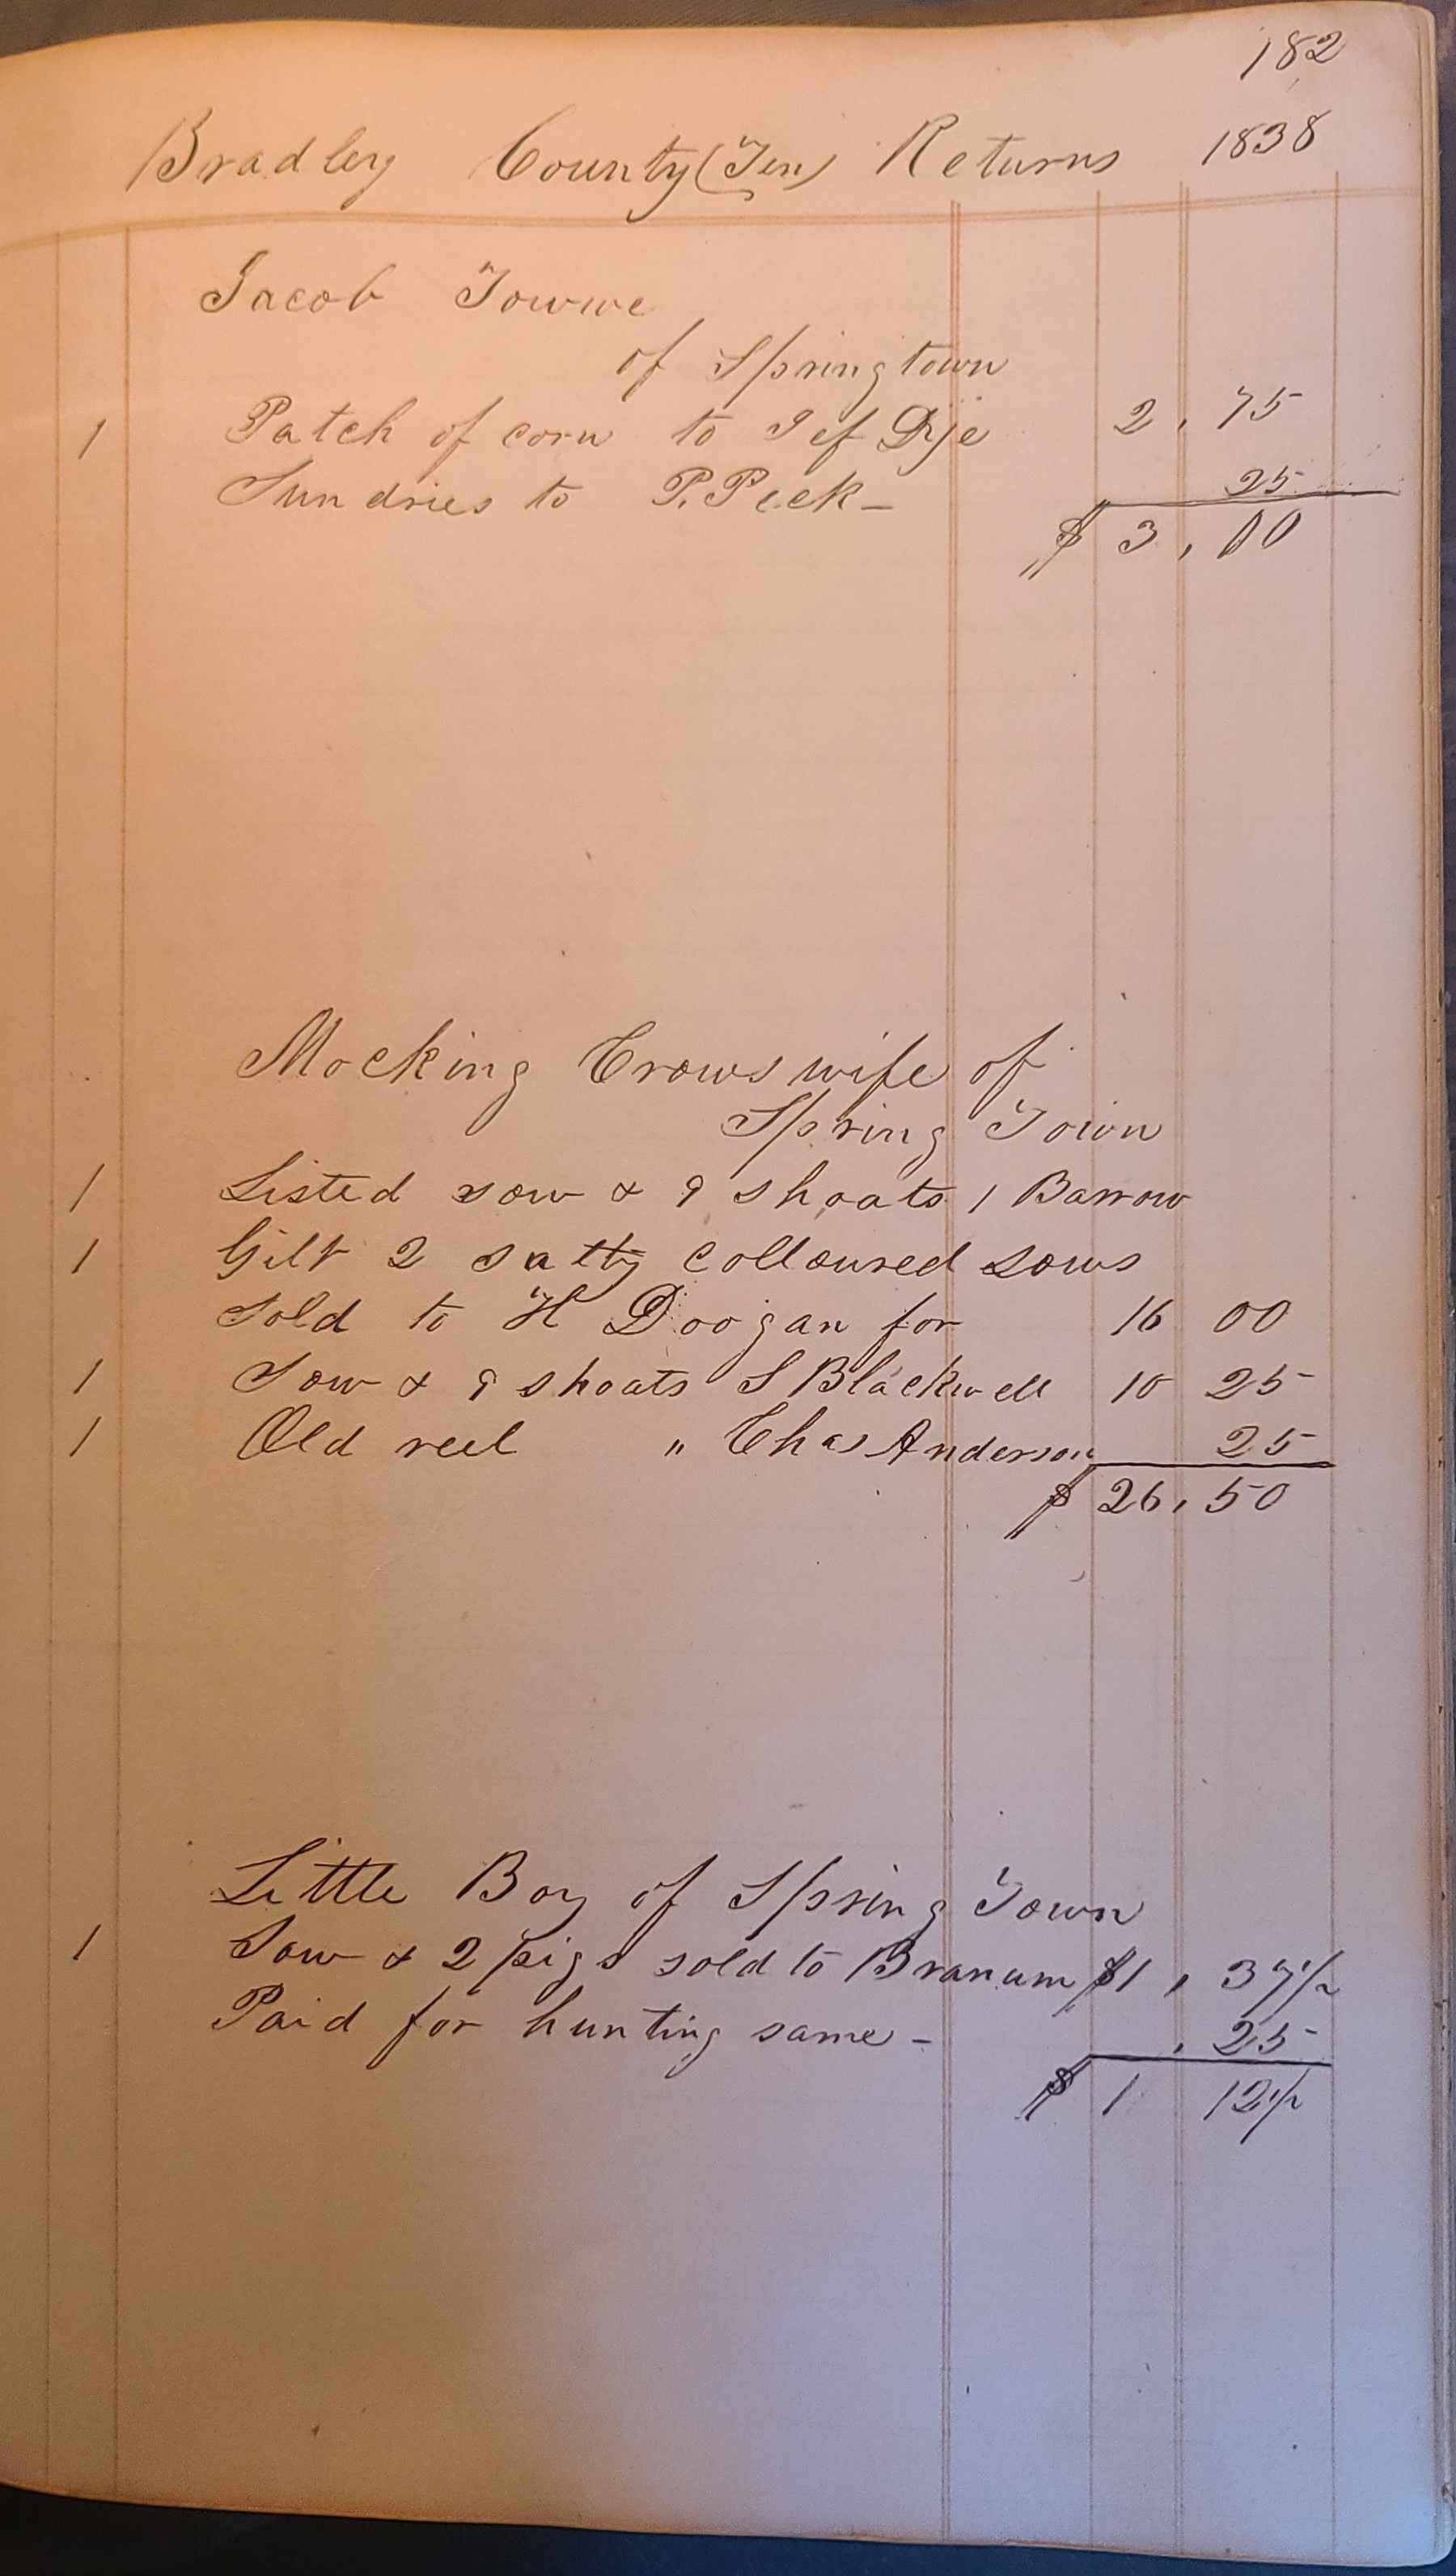 182
Bradley County (Ten) Returns 1838
Jacob Towwe
of Springtown
1 Patch of corn to Jef Dye 2,75
Sundries to P. Peek - 25
$ 3,00
Mocking Crows wife of
Spring Town
1 Listed sow & 9 shoats 1 Barrow
1 Gilt 2 salty colloured sows
Sold to H Doogan for 16 00
1 Sow & 9 shoats S Blackwell 10 25
1 Old reel " Chas Anderson 25
$ 26,50
Little Boy of Spring Town
1 Sow & 2 pigs sold to Branum $1, 37 1/2
Paid for hunting same - .25
$ 1 12 1/2